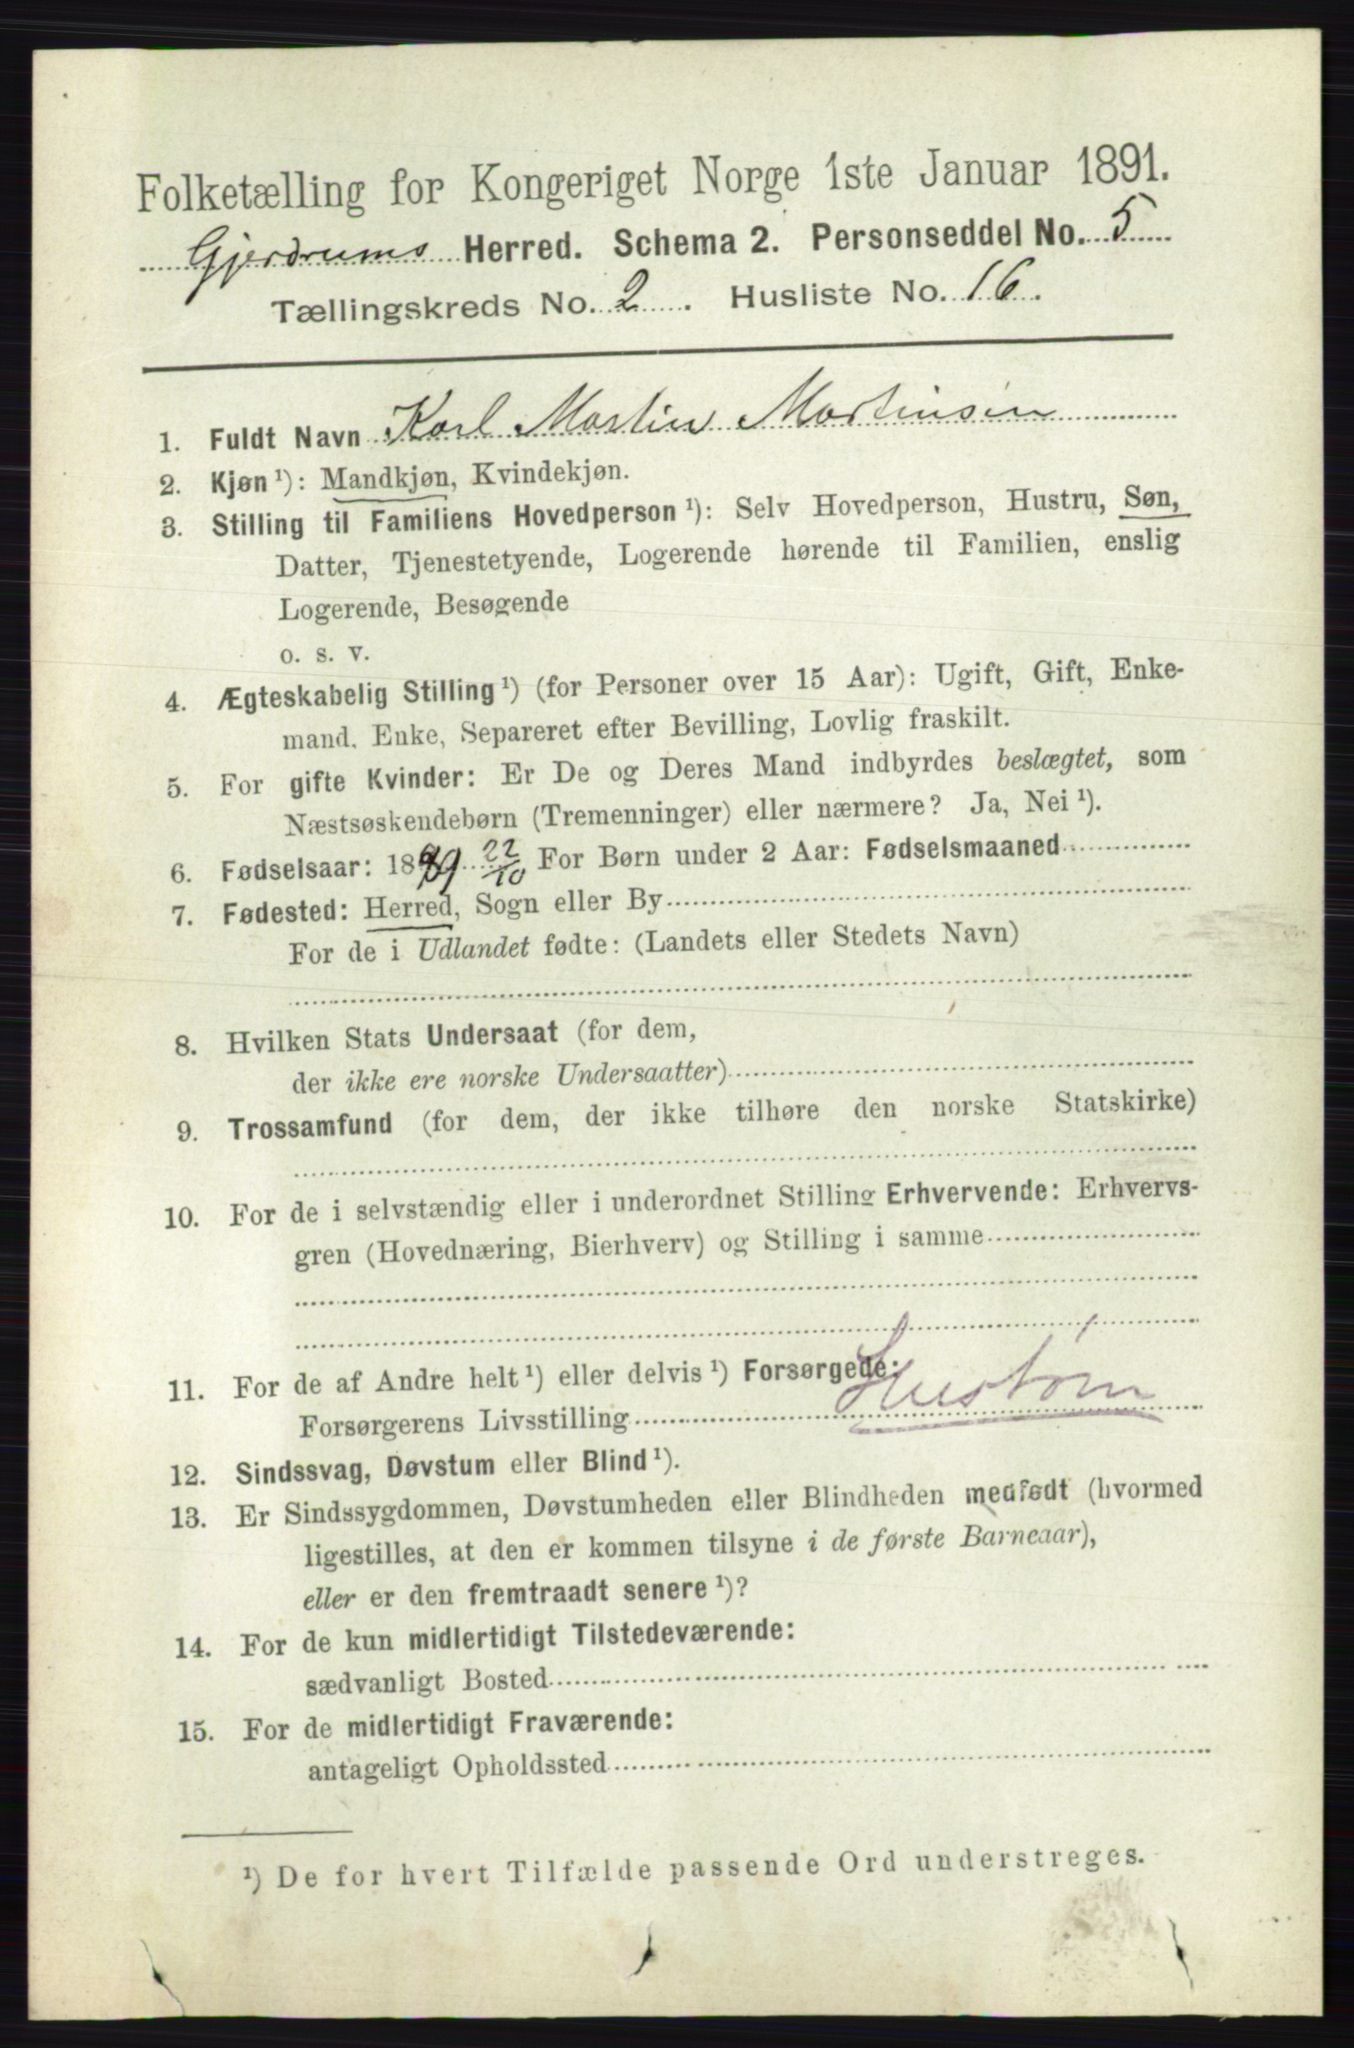 Folketælling for Kongeriget Norge 1ste Januar 1891.
Gjerdrums Herred. Schema 2. Personseddel No. 5
Tællingskreds No. 2. Husliste No. 16.
1. Fuldt Navn Karl Martin Martinsen
2. Kjøn ¹): Mandkjøn, Kvindekjøn.
3. Stilling til Familiens Hovedperson ¹): Selv Hovedperson, Hustru, Søn,
Datter, Tjenestetyende, Logerende hørende til Familien, enslig
Logerende, Besøgende
o. s. v.
4. Ægteskabelig Stilling ¹) (for Personer over 15 Aar): Ugift, Gift, Enke-
mand, Enke, Separeret efter Bevilling, Lovlig fraskilt.
5. For gifte Kvinder: Er De og Deres Mand indbyrdes beslægtet, som
Næstsøskendebørn (Tremenninger) eller nærmere? Ja, Nei ¹).
6. Fødselsaar: 1889 22/10 For Børn under 2 Aar: Fødselsmaaned
7. Fødested: Herred, Sogn eller By
For de i Udlandet fødte: (Landets eller Stedets Navn)
8. Hvilken Stats Undersaat (for dem,
der ikke ere norske Undersaatter)
9. Trossamfund (for dem, der ikke tilhøre den norske Statskirke)
10. For de i selvstændig eller i underordnet Stilling Erhvervende: Erhvervs-
gren (Hovednæring, Bierhverv) og Stilling i samme
11. For de af Andre helt ¹) eller delvis ¹) Forsørgede:
Forsørgerens Livsstilling
12. Sindssvag, Døvstum eller Blind ¹).
13. Er Sindssygdommen, Døvstumheden eller Blindheden medfødt (hvormed
ligestilles, at den er kommen tilsyne i de første Barneaar),
eller er den fremtraadt senere ¹)?
14. For de kun midlertidigt Tilstedeværende:
sædvanligt Bosted
15. For de midlertidigt Fraværende:
antageligt Opholdssted
¹) De for hvert Tilfælde passende Ord understreges.